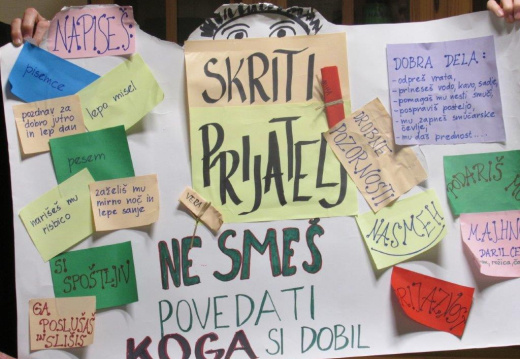 NAPIŠEŠ
pisemce
lepo misel
pozdrav za
dobro jutro
in lep dan
pesem
zaželiš mu
mirno noč in
lepe sanje
narišeš mu
risbico
SI
SPOŠTLJIV
GA
POSLUŠAŠ
IN
SLIŠIŠ
SKRITI
PRIJATELJ
DROBNE
POZORNOSTI
NE SMEŠ
POVEDATI
KOGA SI DOBIL
DOBRA DELA:
- odpreš vrata,
- prineseš vodo, kavo, sadje,
- pomagaš mu nesti smuči,
- pospraviš posteljo,
- mu zapneš smučarske
čevlje,
- mu daš prednost....
NASMEH
PODARIŠ
MAJHNO
DARILCE
PRIJAZNOST